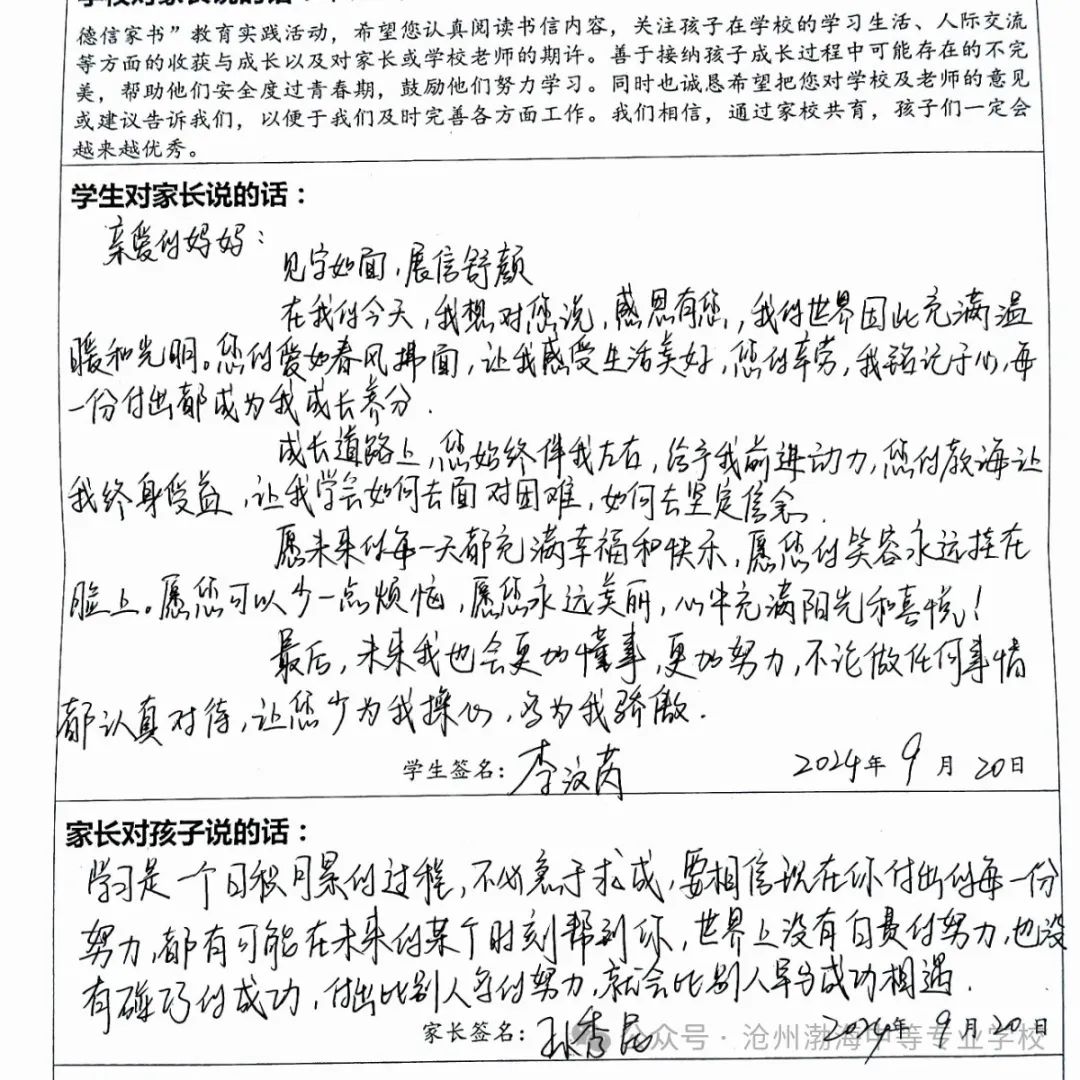 德信家书”教育实践活动，希望您认真阅读书信内容，关注孩子在学校的学习生活、人际交流
等方面的收获与成长以及对家长或学校老师的期许。善于接纳孩子成长过程中可能存在的不完
美，帮助他们安全度过青春期，鼓励他们努力学习。同时也诚恳希望把您对学校及老师的意见
或建议告诉我们，以便于我们及时完善各方面工作。我们相信，通过家校共育，孩子们一定会
越来越优秀。
学生对家长说的话：
亲爱的妈妈：
见字如面，展信舒颜
在我的今天，我想对您说，感恩有您，我的世界因此充满温
暖和光明。您的爱如春风拂面，让我感受生活美好，您的辛劳，我铭记于心，每
一份付出都成为我成长养分.
成长道路上，您始终伴我左右，给予我前进动力，您的教诲让
我终身受益，让我学会如何去面对困难，如何去坚定信念.
愿未来的每一天都充满幸福和快乐，愿您的笑容永远挂在
脸上。愿您可以少一点烦恼，愿您永远美丽，心中充满阳光和喜悦！
最后，未来我也会更加懂事，更加努力，不论做任何事情
都认真对待，让您少为我操心，多为我骄傲.
学生签名：李汶芮 2024年 9 月 20日
家长对孩子说的话：
学习是一个日积月累的过程，不必急于求成，要相信现在你付出的每一份
努力，都有可能在未来的某个时刻帮到你，世界上没有白费的努力，也没
有碰巧的成功，付出比别人多的努力，就会比别人早与成功相遇.
家长签名：孙秀 2024年 9 月 20日
公众号·沧州渤海中等专业学校